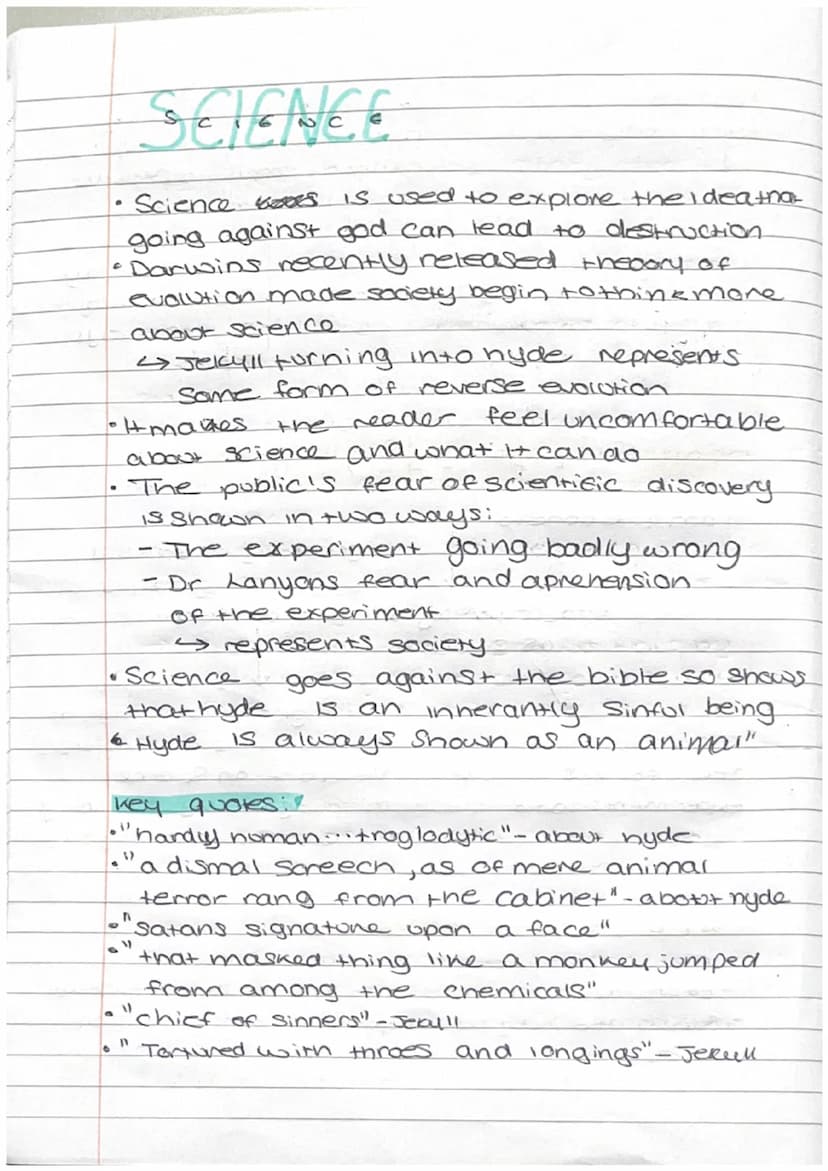 SCIENCE
• Science is used to explore the idea tha
going against god can lead to destruction
• Darwins recently released theory of
evolution made society begin to think more
about science
↪ Jekyll turning into hyde represents
some form of reverse evolution
• It makes the reader feel uncomfortable
about science and what it can do
• The public's fear of scientific discovery
is shown in two ways:
- The experiment going badly wrong
- Dr Lanyons fear and aprehension
of the experiment
↪ represents society
• Science goes against the bible so shows
that hyde is an inherantly sinful being
• Hyde is always shown as an animal"
key quotes:
• "hardly human...troglodytic" - about hyde
• "a dismal screech, as of mere animal
terror rang from the cabinet" - about hyde
• "Satans signature upon a face"
• "that masked thing like a monkey jumped
from among the chemicals"
• "chief of sinners" - Jekyll
• "Tortured with throes and longings" - Jekyll